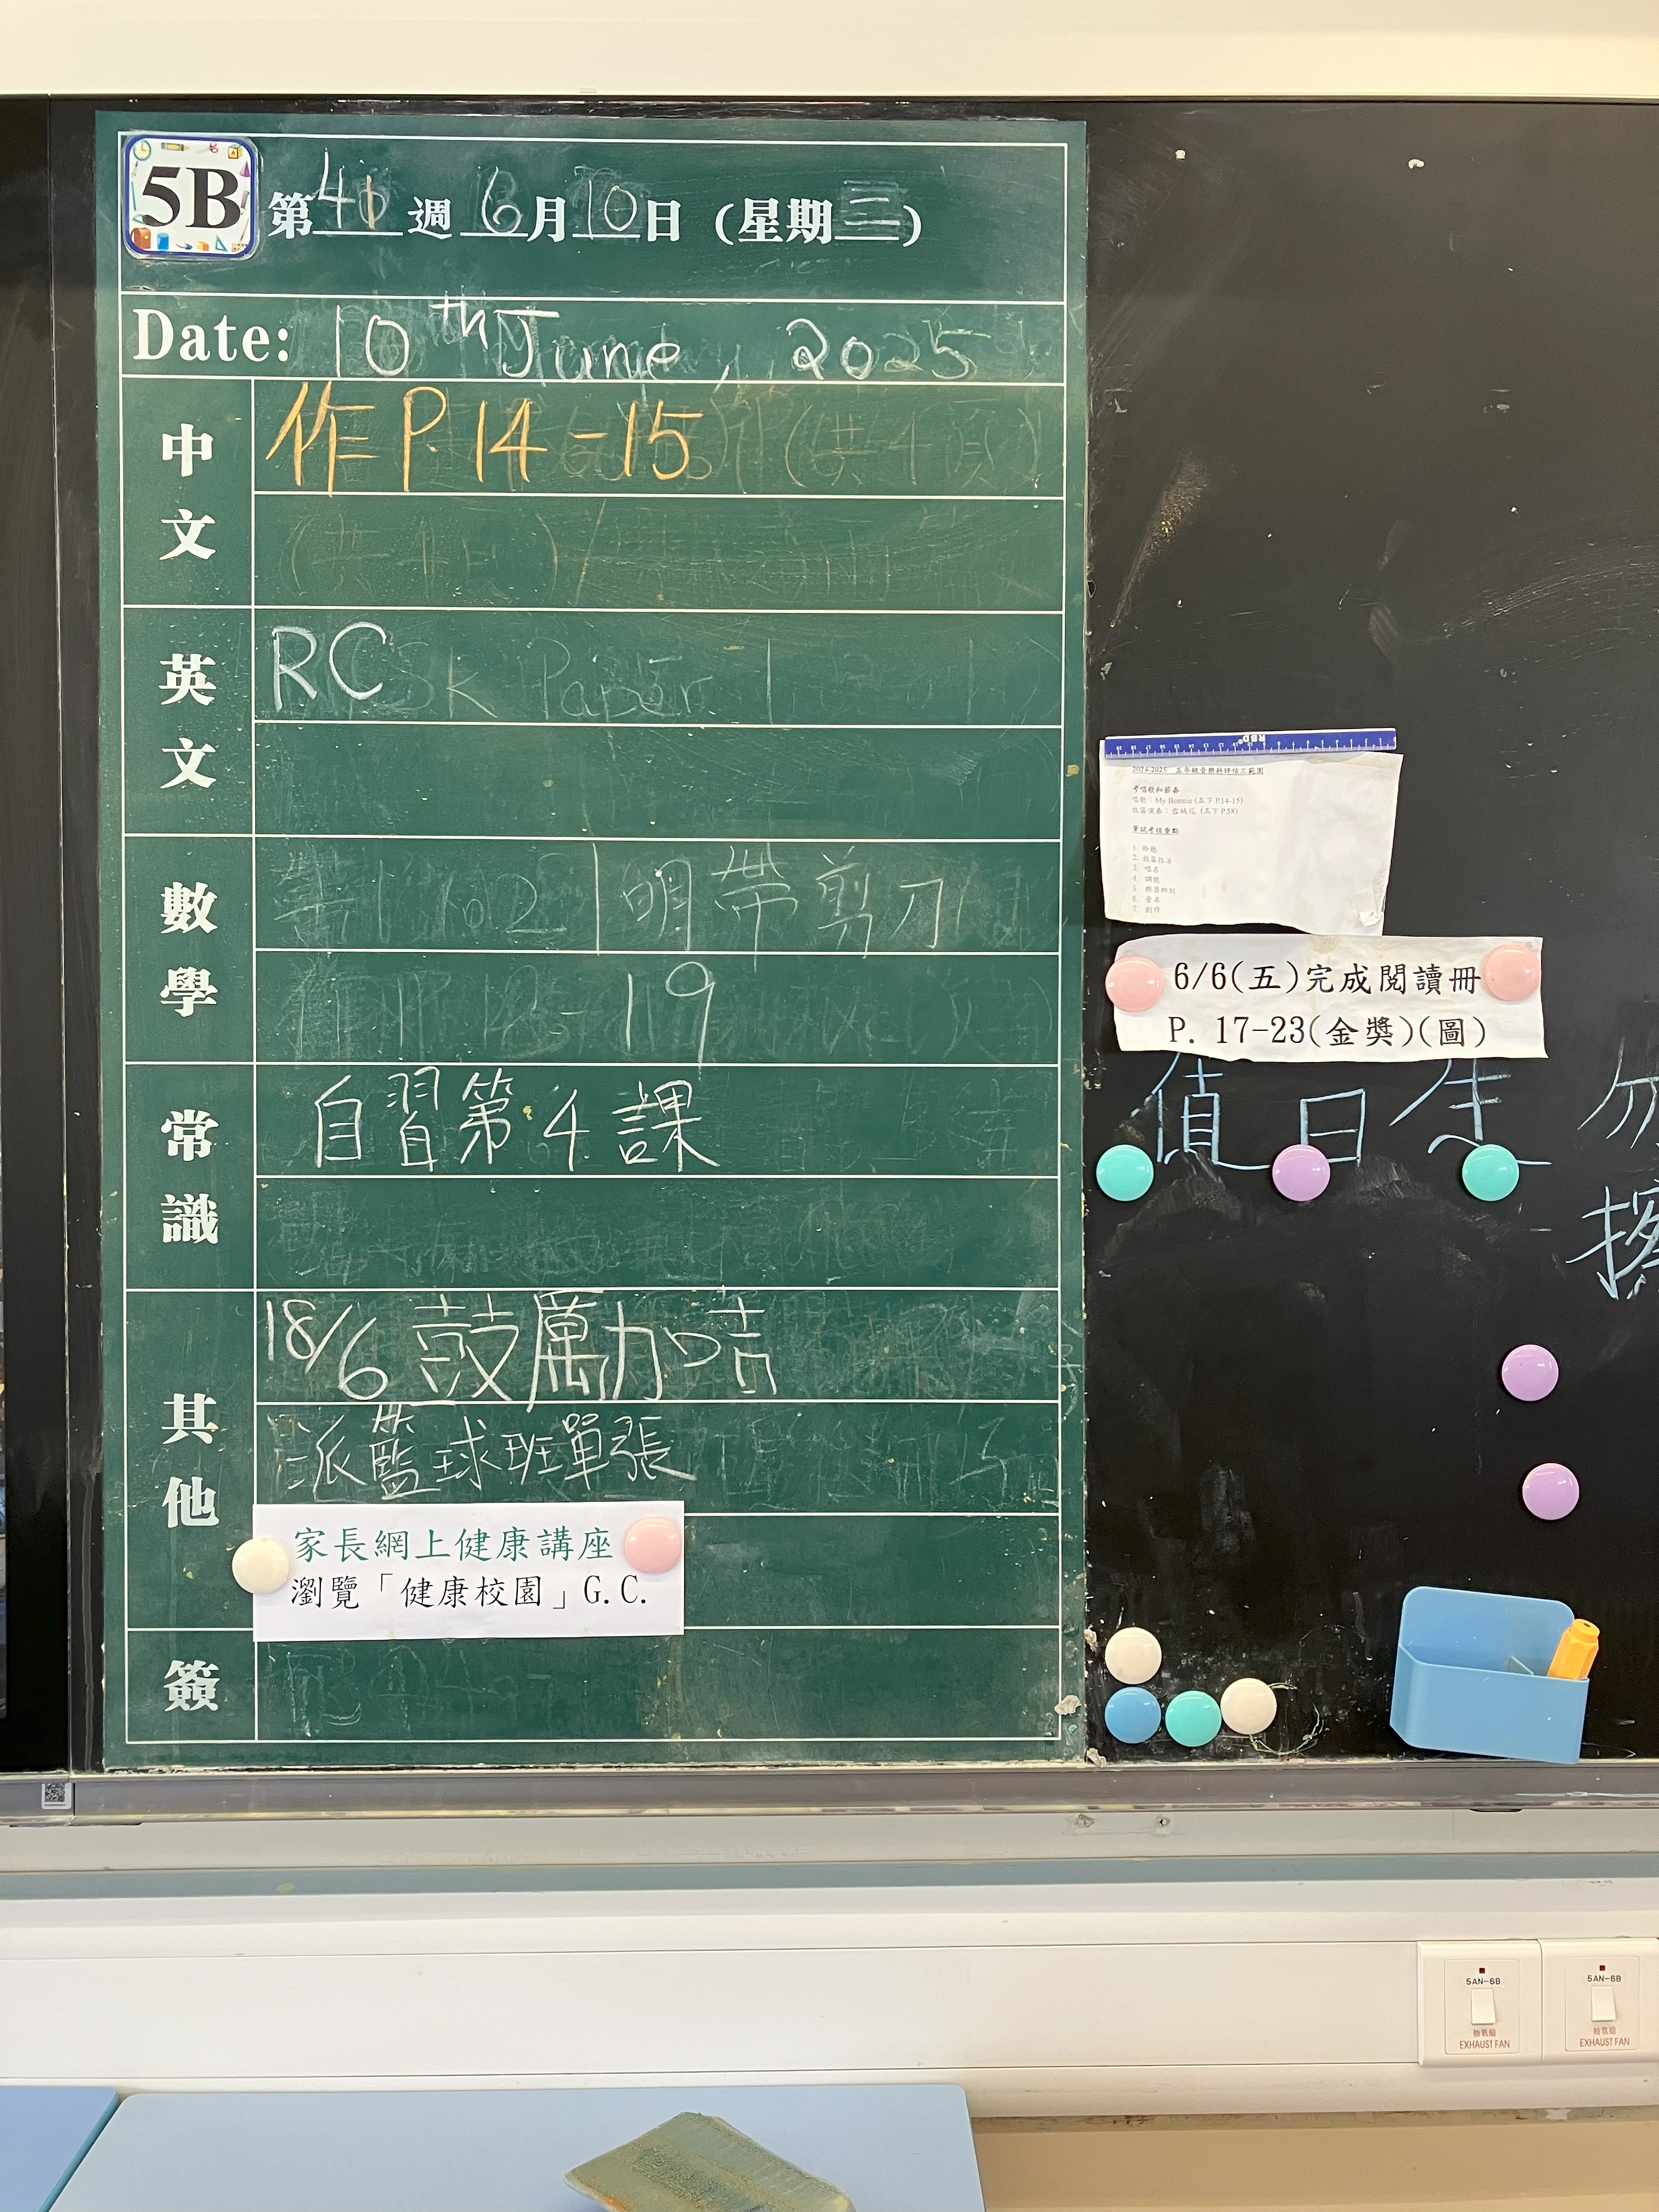 5B 第41週 6月10日 (星期二)
Date: 10th June, 2025
中文
作 P.14-15
英文
RC
數學
明帶剪刀
19
常識
自習第4課
其他
18/6 鼓勵咭
派籃球班單張
家長網上健康講座
瀏覽「健康校園」G.C.
簽
2024-2025 五年級音樂科評估三範圍
考唱歌和節奏
唱歌：My Bonnie (五下 P.14-15)
牧笛演奏：雪絨花 (五下 P.58)
筆試考核重點
1. 聆聽
2. 牧笛指法
3. 唱名
4. 調號
5. 樂器辨別
6. 音名
7. 創作
6/6(五)完成閱讀冊
P. 17-23(金獎)(圖)
值日生
勿
擦
5AN-6B
抽氣扇
EXHAUST FAN
5AN-6B
抽氣扇
EXHAUST FAN